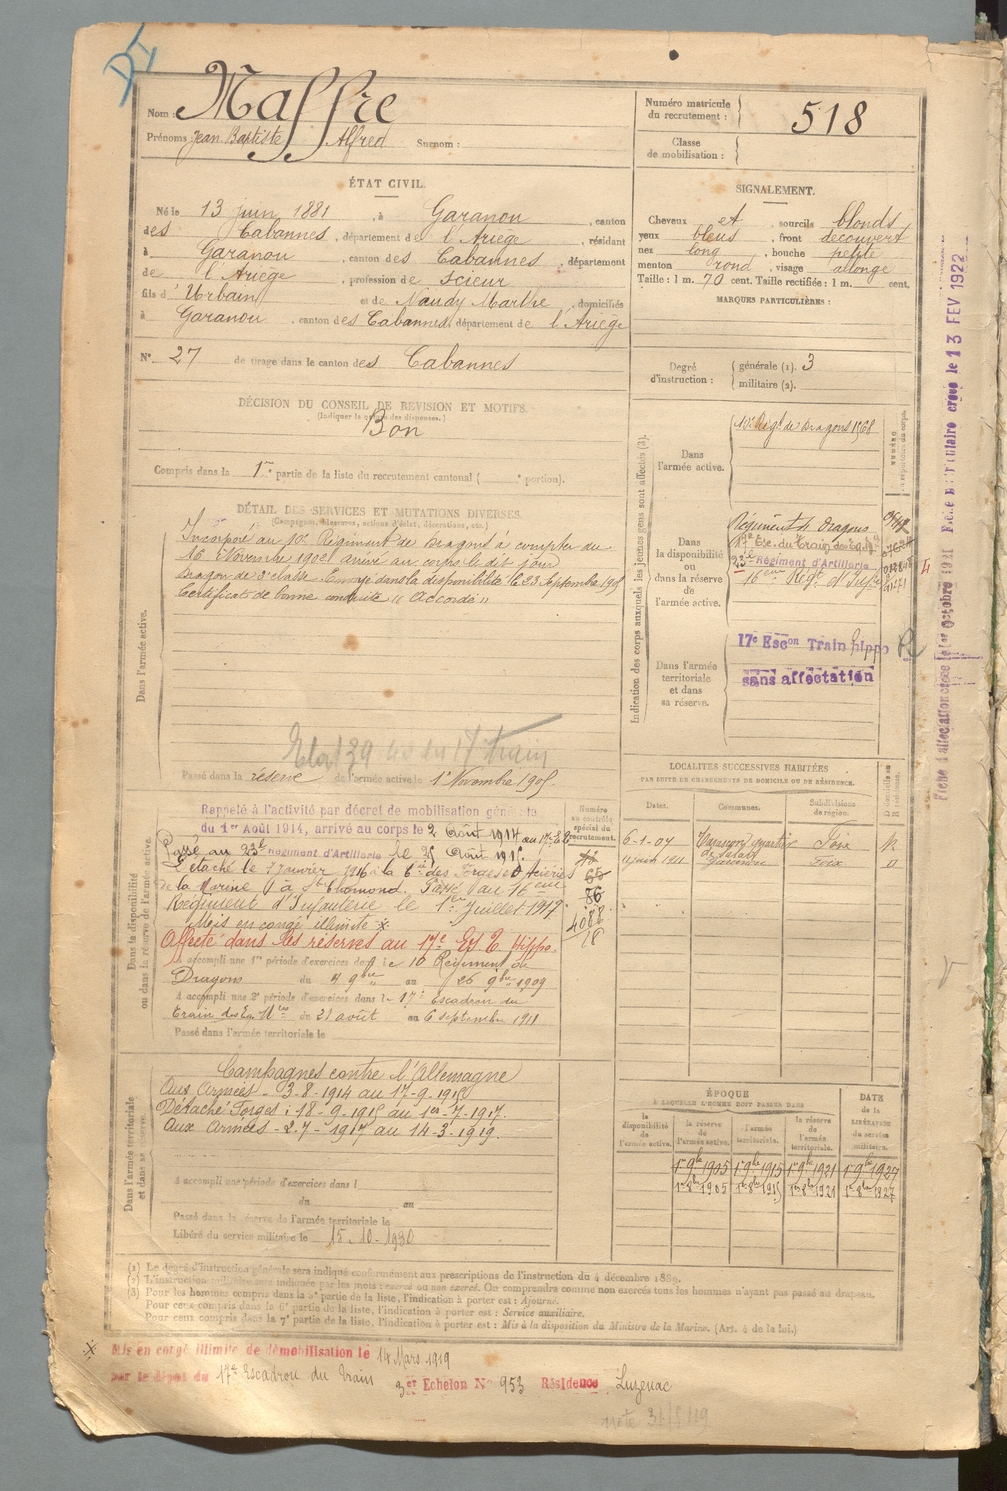 Nom : Maffre
Prénoms : Jean Baptiste Alfred Surnom :
Numéro matricule du recrutement : 518
Classe de mobilisation :
ÉTAT CIVIL.
Né le 13 juin 1881, à Garanou, canton
des Cabannes, département de l'Ariège, résidant
à Garanou, canton des Cabannes, département
de l'Ariège, profession de scieur
fils d'Urbain et de Naudy Marthe, domiciliés
à Garanou, canton des Cabannes, département de l'Ariège
N° 27 de tirage dans le canton des Cabannes
SIGNALEMENT.
Cheveux et sourcils blonds
yeux bleus, front découvert
nez long, bouche petite
menton rond, visage allongé
Taille : 1 m. 70 cent. Taille rectifiée : 1 m. cent.
MARQUES PARTICULIÈRES :
Degré d'instruction : générale (1). 3
militaire (2).
DÉCISION DU CONSEIL DE REVISION ET MOTIFS.
(Indiquer le motif des dispenses.)
Bon
Compris dans la 1re partie de la liste du recrutement cantonal ( e portion).
DÉTAIL DES SERVICES ET MUTATIONS DIVERSES.
(Campagnes, blessures, actions d'éclat, décorations, etc.)
Dans l'armée active.
Incorporé au 10e Régiment de Dragons à compter du
16 Novembre 1902 arrivé au corps le dit jour
Dragon de 2e classe. Envoyé dans la disponibilité le 23 Septembre 1905
Certificat de bonne conduite "Accordé"
Passé dans la réserve de l'armée active le 1er Novembre 1905
Indication des corps auxquels les jeunes gens sont affectés (3).
NUMÉRO au répertoire du corps.
Dans l'armée active. 10e Régt de Dragons 1568
Dans la disponibilité ou dans la réserve de l'armée active.
Régiment de Dragons
17e Esc. du Train des Eq.
23e Régiment d'Artillerie
16ème Régt d'Infie
Dans l'armée territoriale et dans sa réserve.
17e Escon Train hippo
sans affectation
Fiche d'affectation créée le 13 FEV 1922
LOCALITÉS SUCCESSIVES HABITÉES
PAR SUITE DE CHANGEMENTS DE DOMICILE OU DE RÉSIDENCE.
Dates. Communes. Subdivisions de région.
6-1-07 Tarascon quartier Foix R
11 juin 1911 Garanou Foix D
Dans la disponibilité ou dans la réserve de l'armée active.
Numéro au contrôle spécial du recrutement.
Rappelé à l'activité par décret de mobilisation générale
du 1er Août 1914, arrivé au corps le 2 Août 1914
Passé au 23e Régiment d'Artillerie le 25 Août 1915
Détaché le 7 Janvier 1916 à la Cie des Forges et Aciéries
de la Marine à St Chamond. Passé au 16ème
Régiment d'Infanterie le 1er Juillet 1917
Mis en congé illimité
Affecté dans les réserves au 17e Es. T. Hippo.
A accompli une 1re période d'exercices dans le 10e Régiment de
Dragons du 4 9bre au 26 9bre 1909
A accompli une 2e période d'exercices dans le 17e Escadron du
train des Eq. Mres du 21 août au 6 septembre 1911
Passé dans l'armée territoriale le
86
4088
18
Dans l'armée territoriale et dans sa réserve.
Campagnes contre l'Allemagne
Aux Armées - 3-8-1914 au 17-9-1915
Détaché Forges : 18-9-1915 au 1er-7-1917.
Aux Armées - 2-7-1917 au 14-3-1919.
A accompli une période d'exercices dans l
du au
Passé dans la réserve de l'armée territoriale le
Libéré du service militaire le 15-10-1930
ÉPOQUE
À LAQUELLE L'HOMME DOIT PASSER DANS
la disponibilité de l'armée active. la réserve de l'armée active. l'armée territoriale. la réserve de l'armée territoriale.
DATE de la LIBÉRATION du service militaire.
1er 9bre 1905 1er 9bre 1915 1er 9bre 1921 1er 9bre 1927
1er 8bre 1905 1er 8bre 1915 1er 8bre 1921 1er 8bre 1927
(1) Le degré d'instruction générale sera indiqué conformément aux prescriptions de l'instruction du 4 décembre 1889.
(2) L'instruction militaire sera indiquée par les mots : exercé ou non exercé. On comprendra comme non exercés tous les hommes n'ayant pas passé au drapeau.
(3) Pour les hommes compris dans la 5e partie de la liste, l'indication à porter est : Ajourné.
Pour ceux compris dans la 6e partie de la liste, l'indication à porter est : Service auxiliaire.
Pour ceux compris dans la 7e partie de la liste, l'indication à porter est : Mis à la disposition du Ministre de la Marine. (Art. 4 de la loi.)
Mis en congé illimité de démobilisation le 14 Mars 1919
par le dépôt du 17e Escadron du Train
3er Echelon N° 953 Résidence Luzenac